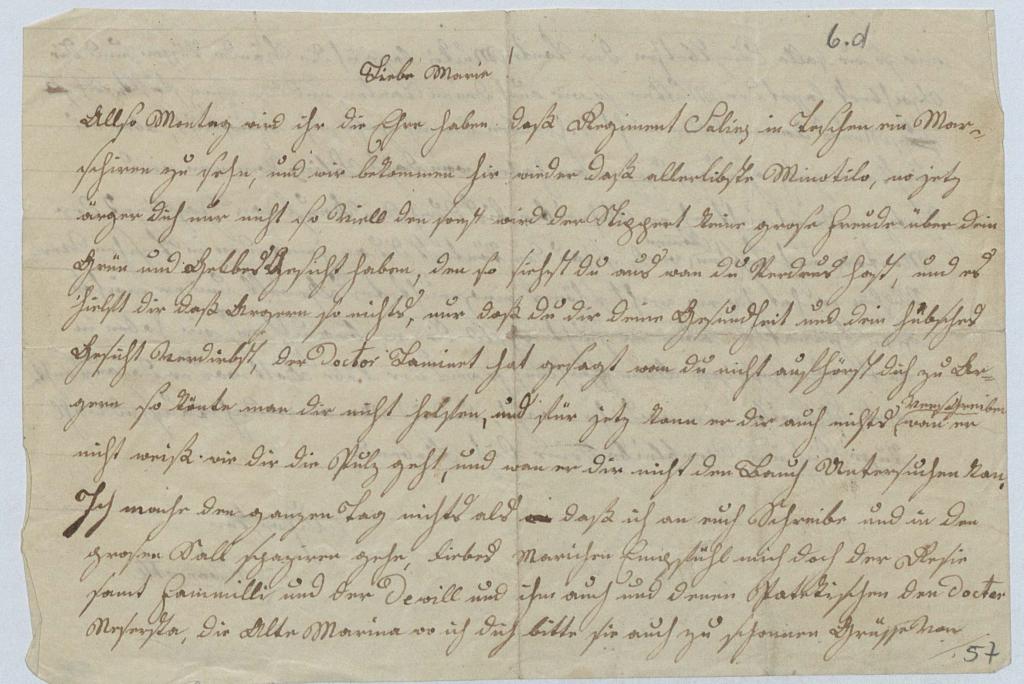 6.d
Liebe Marie
Allso Montag wird ihr die Ehre haben daß Regiment Salins in Teschen ein Mar-
schiren zu sehn, und wir bekommen hir wieder daß allerlibste Minotilo, no jetz
ärger dich nur nicht so Viell den sonst wird der Stippert keine grose Freude über dein
Grün und Gelbes Gesicht haben, den so siehst du aus wan du Verdrus hast, und es
hielft dir daß Ärgern so nichts, nur daß du dir deine Gesundheit und dein hübsches
Gesicht Verdirbst, der Doctor Taminet hat gesagt wan du nicht aufhörst dich zu Är-
gern so könte man dir nicht helfen, und für jetz kann er dir auch nichts Verschreiben wan er
nicht weiß wie dir die Pulz geht, und wan er dir nicht den Bauch Untersuchen kan,
Ich mache den ganzen Tag nichts als daß ich an euch Schreibe und in den
grosen Sall spaziren gehe, liebes Marichen Empfühl mich doch der Resie
samt Fammilli und der Dewill und ihm auch und denen den Doctor
die Alte Marina wo ich dich bitte sie auch zu schonnen Grüsse von
57